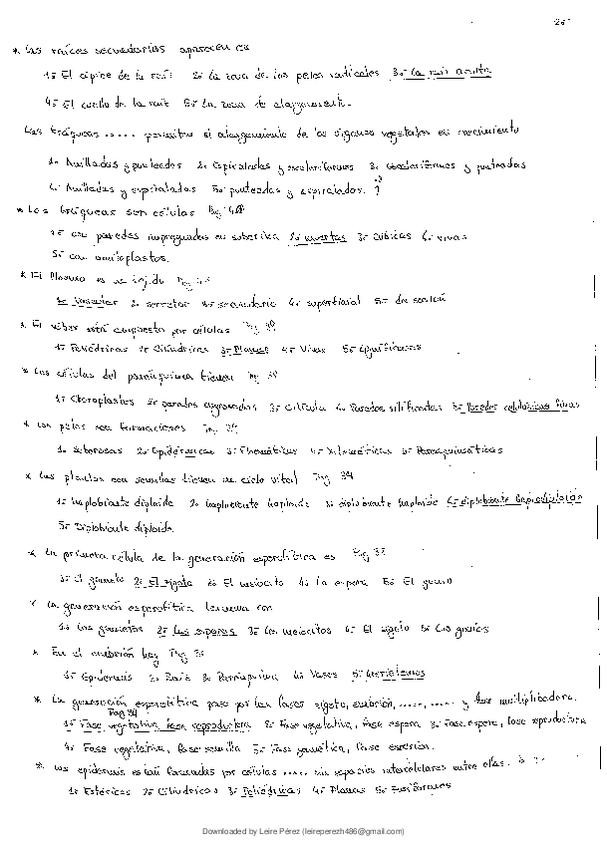 * Las raíces secundarias aparecen en
1º El ápice de la raíz 2º La zona de los pelos radicales 3º La raíz adulta
4º El cuello de la raíz 5º La zona de alargamiento.
Las tráqueas ..... permiten el alargamiento de los órganos vegetales en crecimiento
1º Anilladas y punteadas 2º Espiraladas y escalariformes 3º y punteadas
4º Anilladas y espiraladas 5º punteadas y espiraladas. ?
* Las tráqueas son células Pg
1º con paredes impregnadas en suberina 2º muertas 3º cúbicas 4º vivas
5º con amiloplastos.
* El floema es un tejido Pg
1º Vascular 2º secretor 3º secundario 4º superficial 5º de sostén
* El súber está compuesto por células Pg 38
1º Poliédricas 2º Cilíndricas 3º Planas 4º Vivas 5º Lignificadas
* Las células del parénquima tienen Pg
1º Cloroplastos 2º paredes 3º Cutícula 4º Paredes silificadas 5º Paredes celulósicas finas
* Los pelos son formaciones Pg
1º Suberosas 2º Epidérmicas 3º Floemáticas 4º Xilemáticas 5º Parenquimáticas
* Las plantas con semillas tienen un ciclo vital Pg 34
1º Haplobionte diploide 2º haplobionte haploide 3º diplobionte haploide 4º diplobionte haplodiploide
5º Diplobionte diploide.
* La primera célula de la generación esporofítica es Pg
1º El gameto 2º El zigoto 3º El meiocito 4º La espora 5º El
* La generación esporofítica termina con
1º Los gametos 2º Las esporas 3º Los meiocitos 4º El zigoto 5º Los
* En el embrión hay Pg
1º Epidermis 2º Raíz 3º Parénquima 4º Vasos 5º Meristemos
* La generación esporofítica pasa por las fases zigoto, embrión, ....., ..... y fase multiplicadora.
Pag 34
1º Fase vegetativa, fase reproductora 2º Fase vegetativa, fase espora 3º Fase espora, fase reproductora
4º Fase vegetativa, fase semilla 5º Fase gamética, fase
* Las epidermis están formadas por células ..... sin espacios intercelulares entre ellas.
1º Esféricas 2º Cilíndricas 3º Poliédricas 4º Planas 5º Fusiformes
Downloaded by Leire Pérez (leireperezh486@gmail.com)